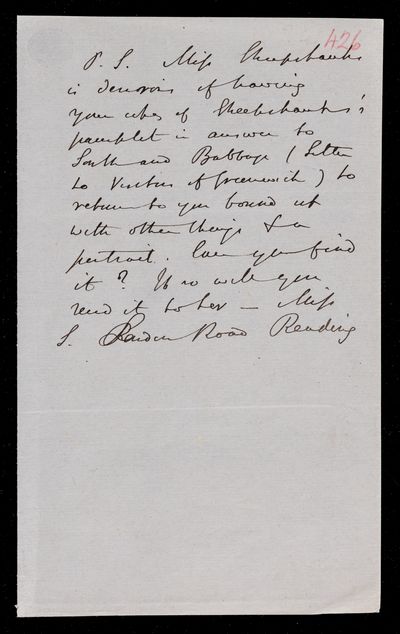 426
P. S. Miss Sheepshanks
is desirous of having
your copy of Sheepshanks's
pamphlet in answer to
South and Babbage (Letter
to Visitors of Greenwich) to
return to you bound up
with other things & a
portrait. Can you find
it? If so will you
send it to her — Miss
S. London Road Reading